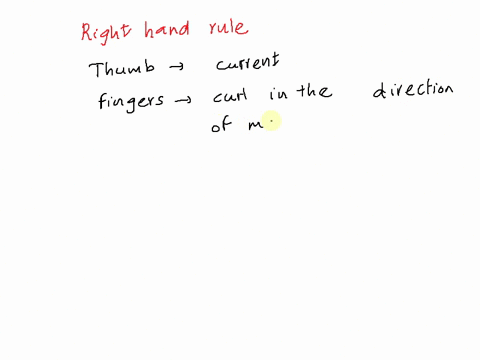 Right hand rule
Thumb → current
fingers → curl in the direction
of m